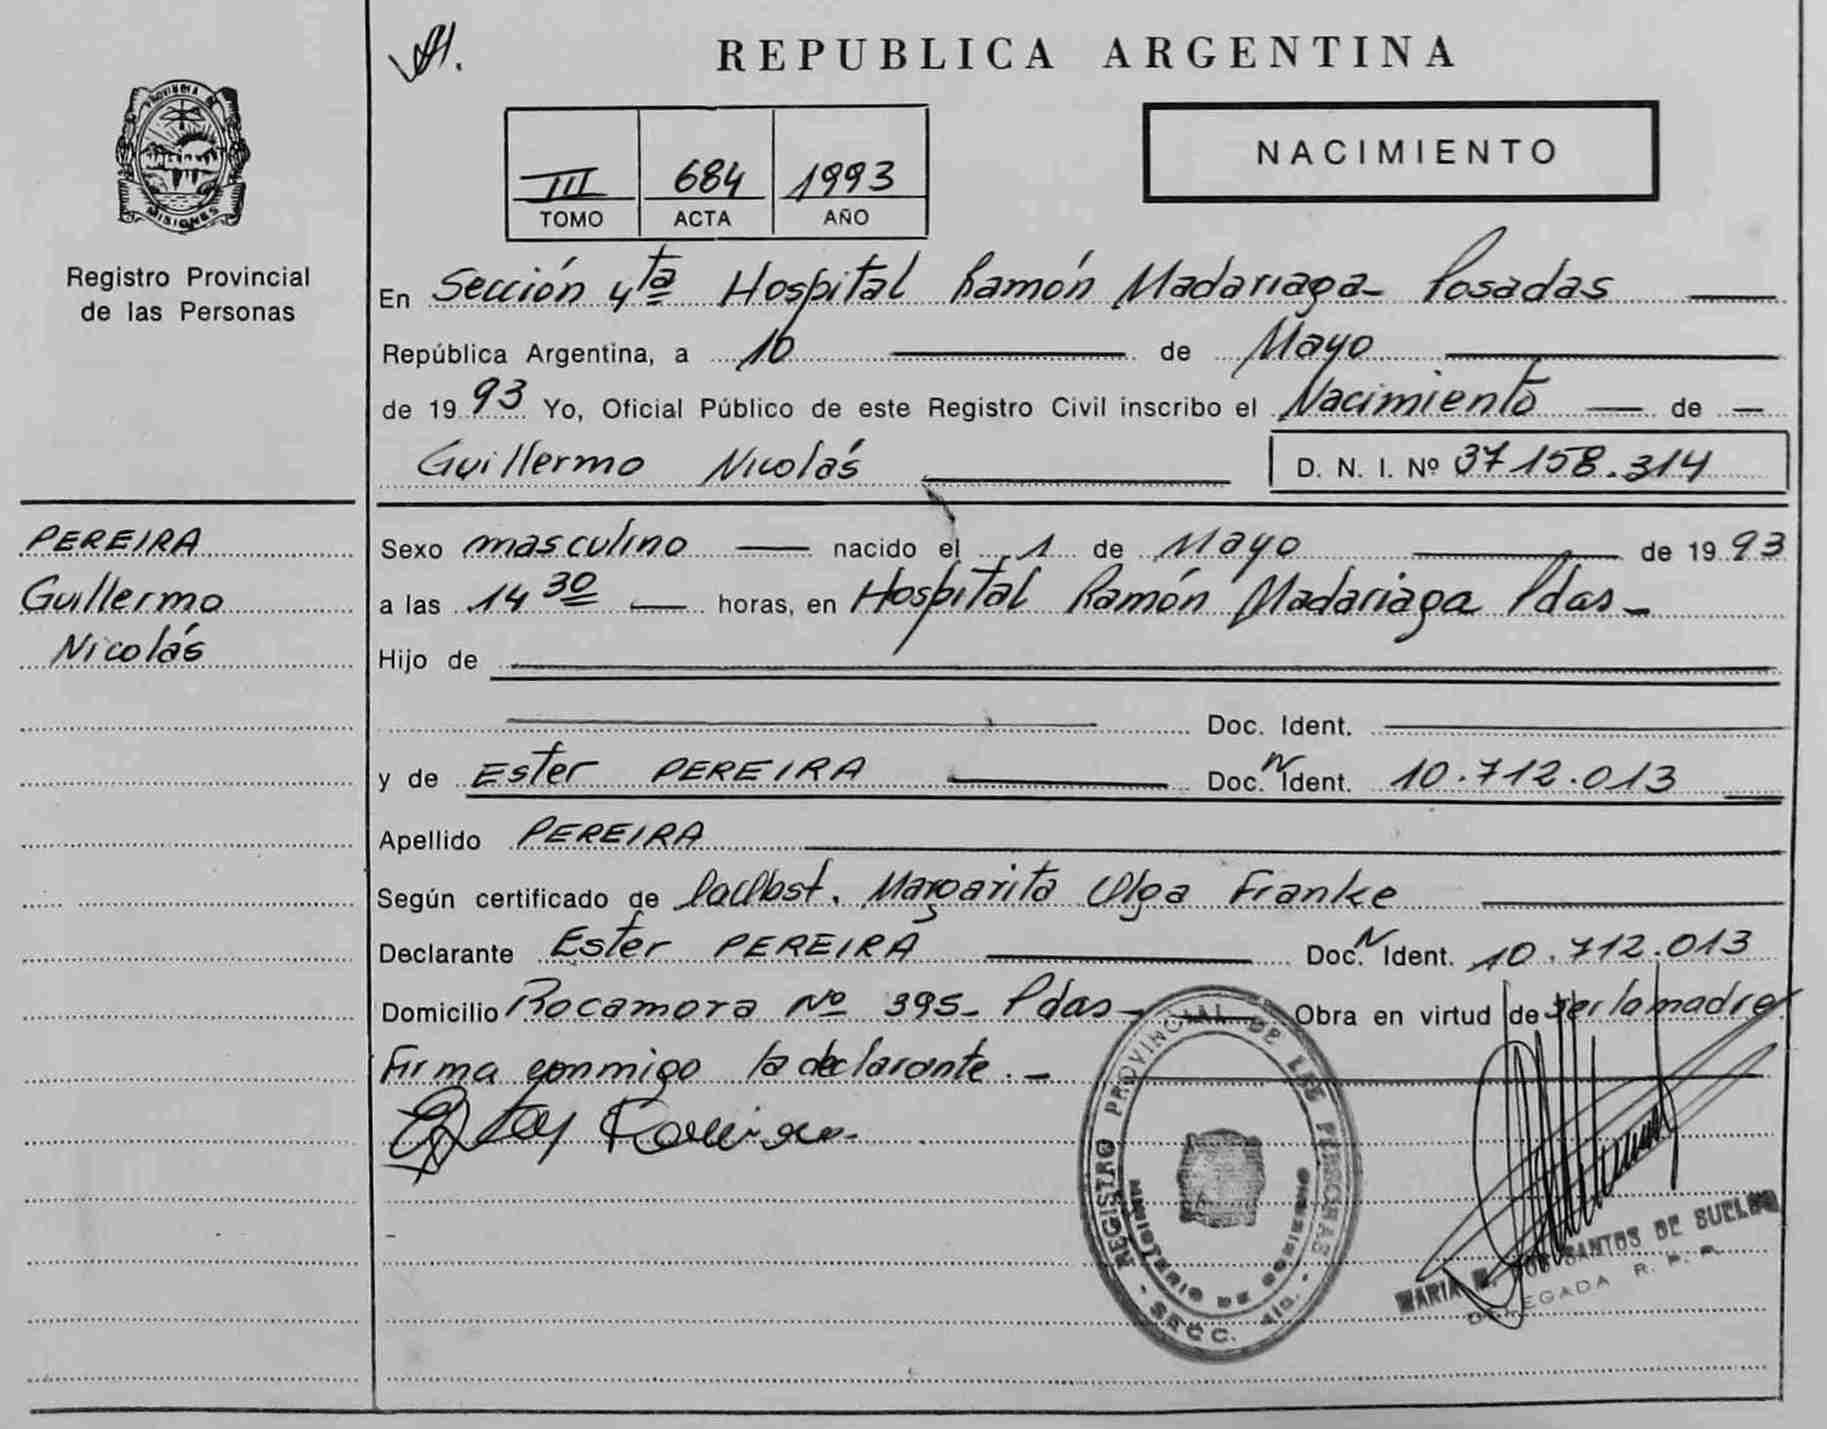 REPUBLICA ARGENTINA
PROVINCIA DE
MISIONES
Registro Provincial
de las Personas
III 684 1993
TOMO ACTA AÑO
NACIMIENTO
En Sección 4ta Hospital Ramón Madariaga - Posadas
República Argentina, a 10 de Mayo
de 1993 Yo, Oficial Público de este Registro Civil inscribo el Nacimiento de
Guillermo Nicolás D. N. I. Nº 37158.314
PEREIRA
Guillermo
Nicolás
Sexo masculino nacido el 1 de Mayo de 1993
a las 14 30 horas, en Hospital Ramón Madariaga Pdas -
Hijo de
Doc. Ident.
y de Ester PEREIRA Doc. N Ident. 10.712.013
Apellido PEREIRA
Según certificado de Margarita Olga Franke
Declarante Ester PEREIRA Doc. N Ident. 10.712.013
Domicilio Rocamora Nº 395 - Pdas - Obra en virtud de ser la madre
Firma conmigo la declarante . -
REGISTRO PROVINCIAL DE LAS PERSONAS - SECC. 4ta. -
MINISTERIO DE
MARIA DOS SANTOS DE
DELEGADA R. P. P.